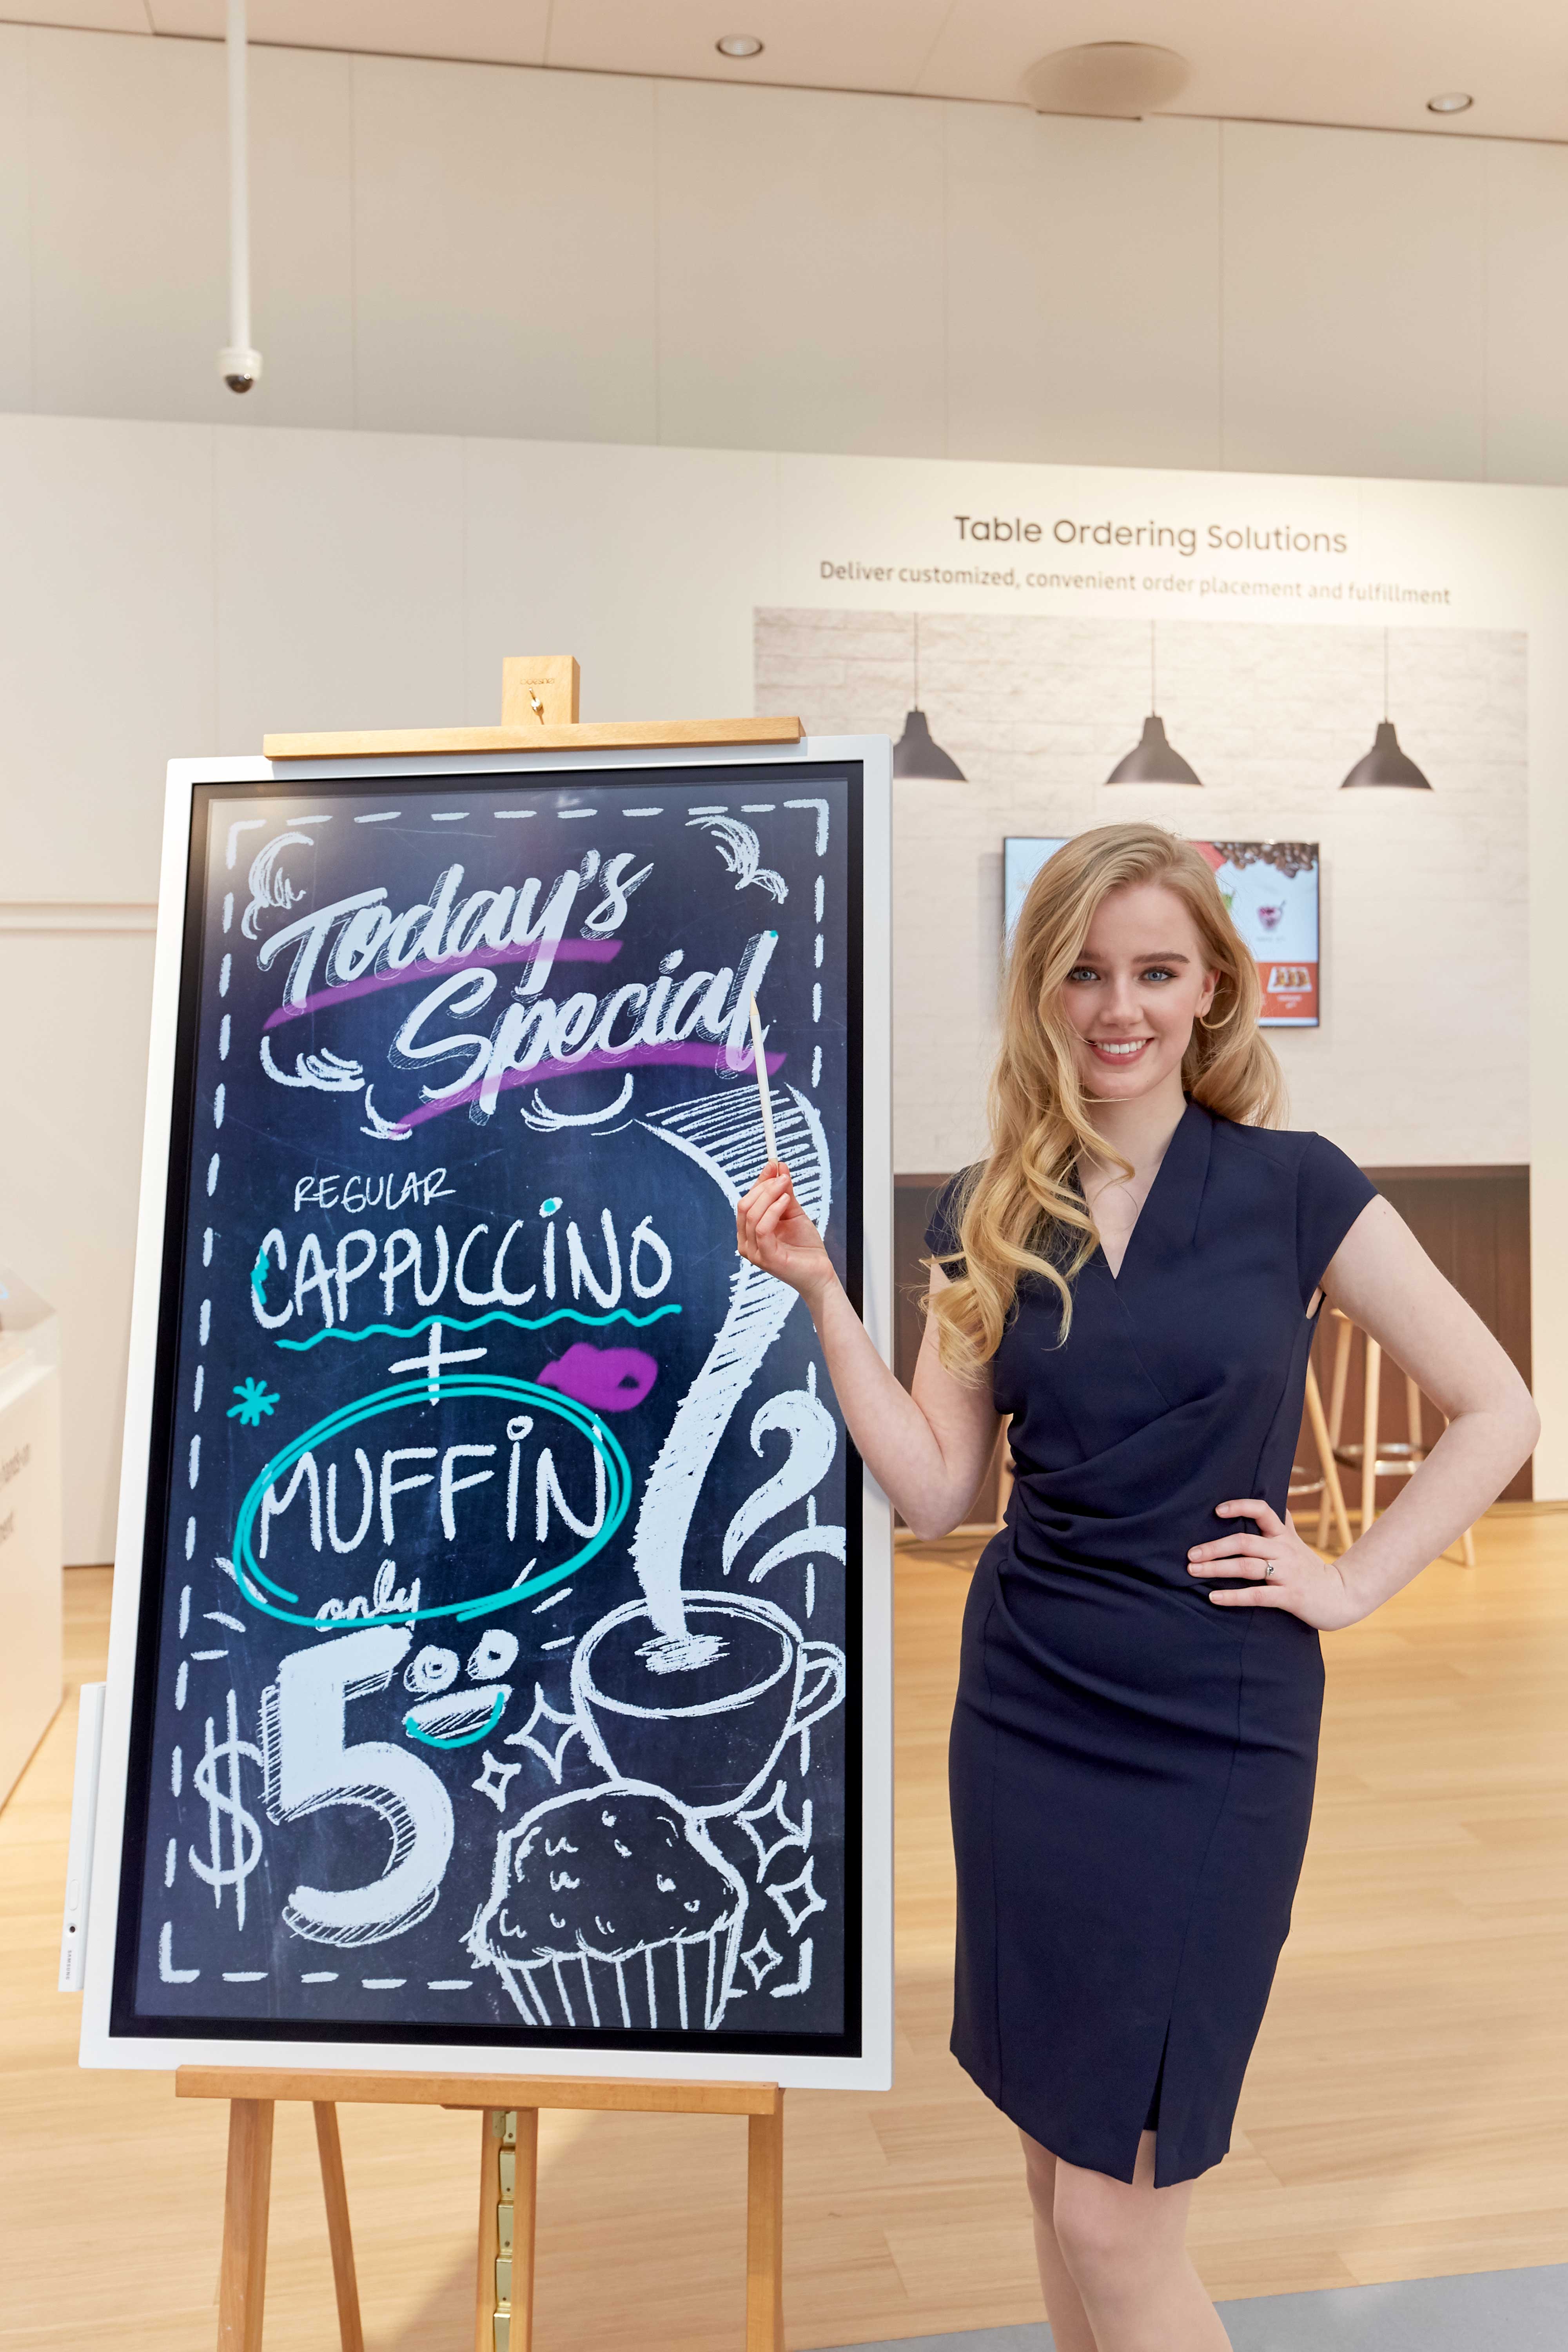 Table Ordering Solutions
Deliver customized, convenient order placement and fulfillment
Today's
Special
REGULAR
CAPPUCCINO
+
MUFFIN
only
$5
2
SAMSUNG